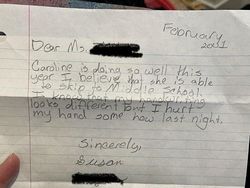 February
2011
Dear Ms.
Caroline is doing so well this
year I believe that she is able
to skip to Middle School
I know my handwriting
looks different but I hurt
my hand some how last night.
Sincerely,
Susan